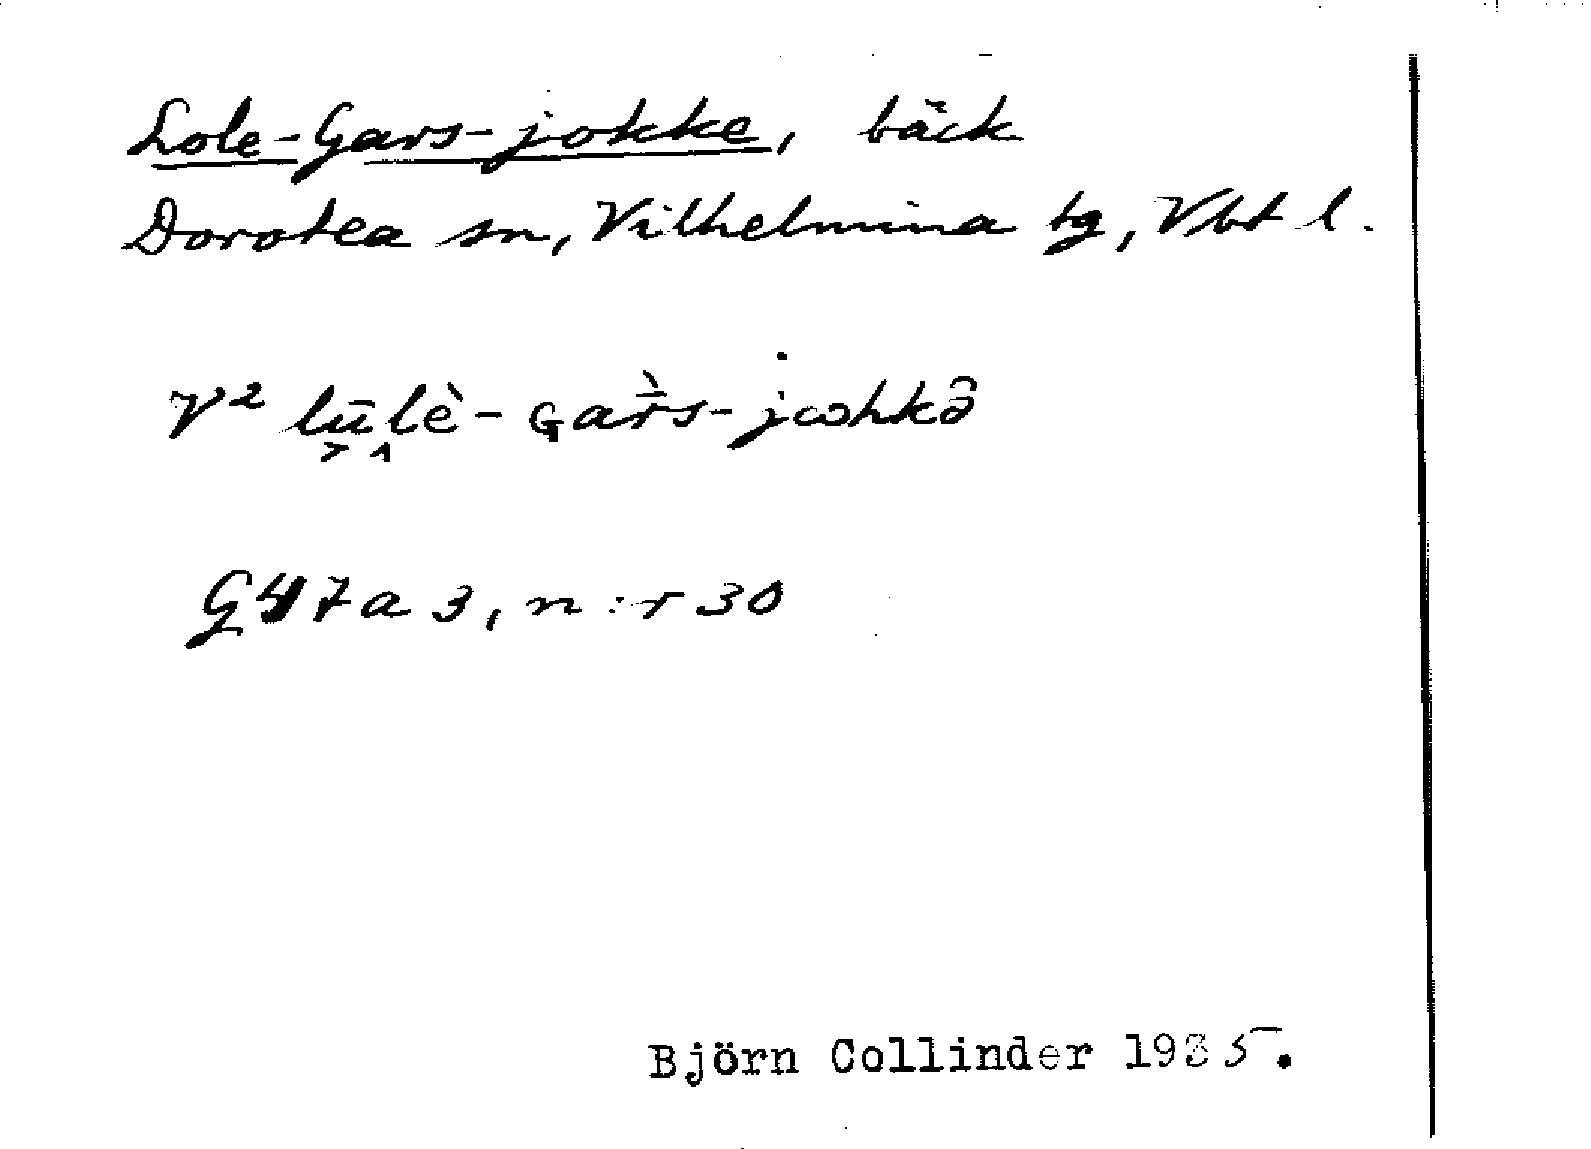 Lole-Gars-jokke, bäck
Dorotea sn, Vilhelmina tg, Vbt l.
V² lūlè-Gar̀s-jωhkə̂
G47a3, n:r 30
Björn Collinder 1935.